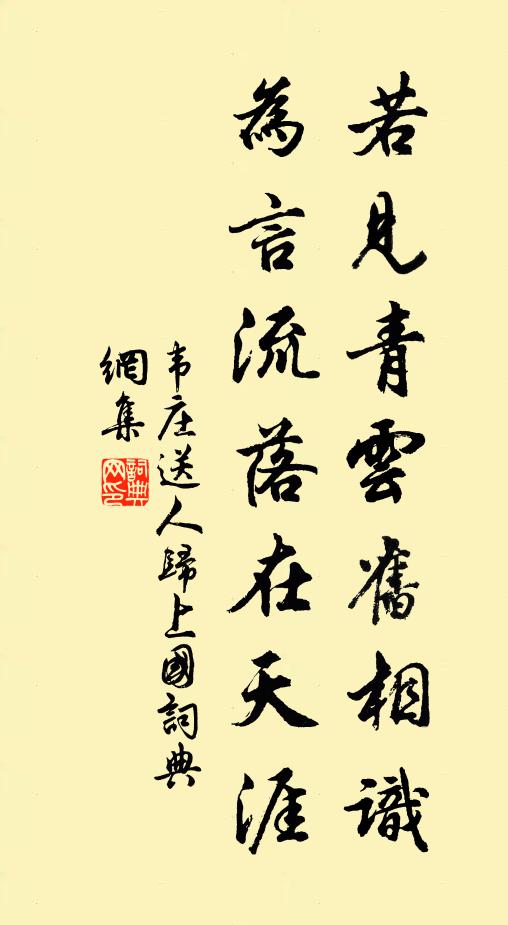 若見青雲舊相識
為言流落在天涯
韦庄送人歸上國詞典
網集
詞典網印